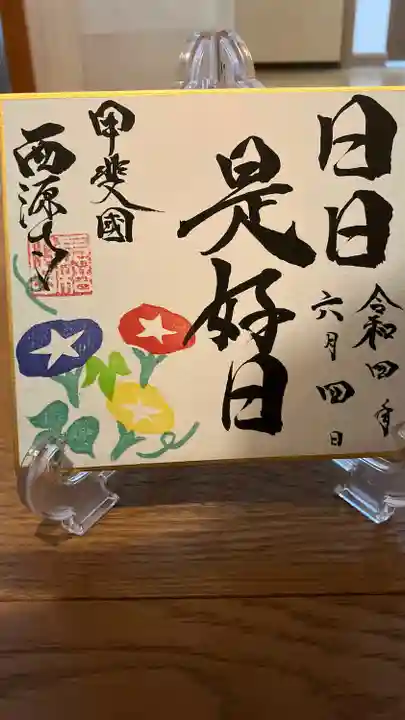 日日
是好日
令和四年
六月四日
甲斐國
西源寺